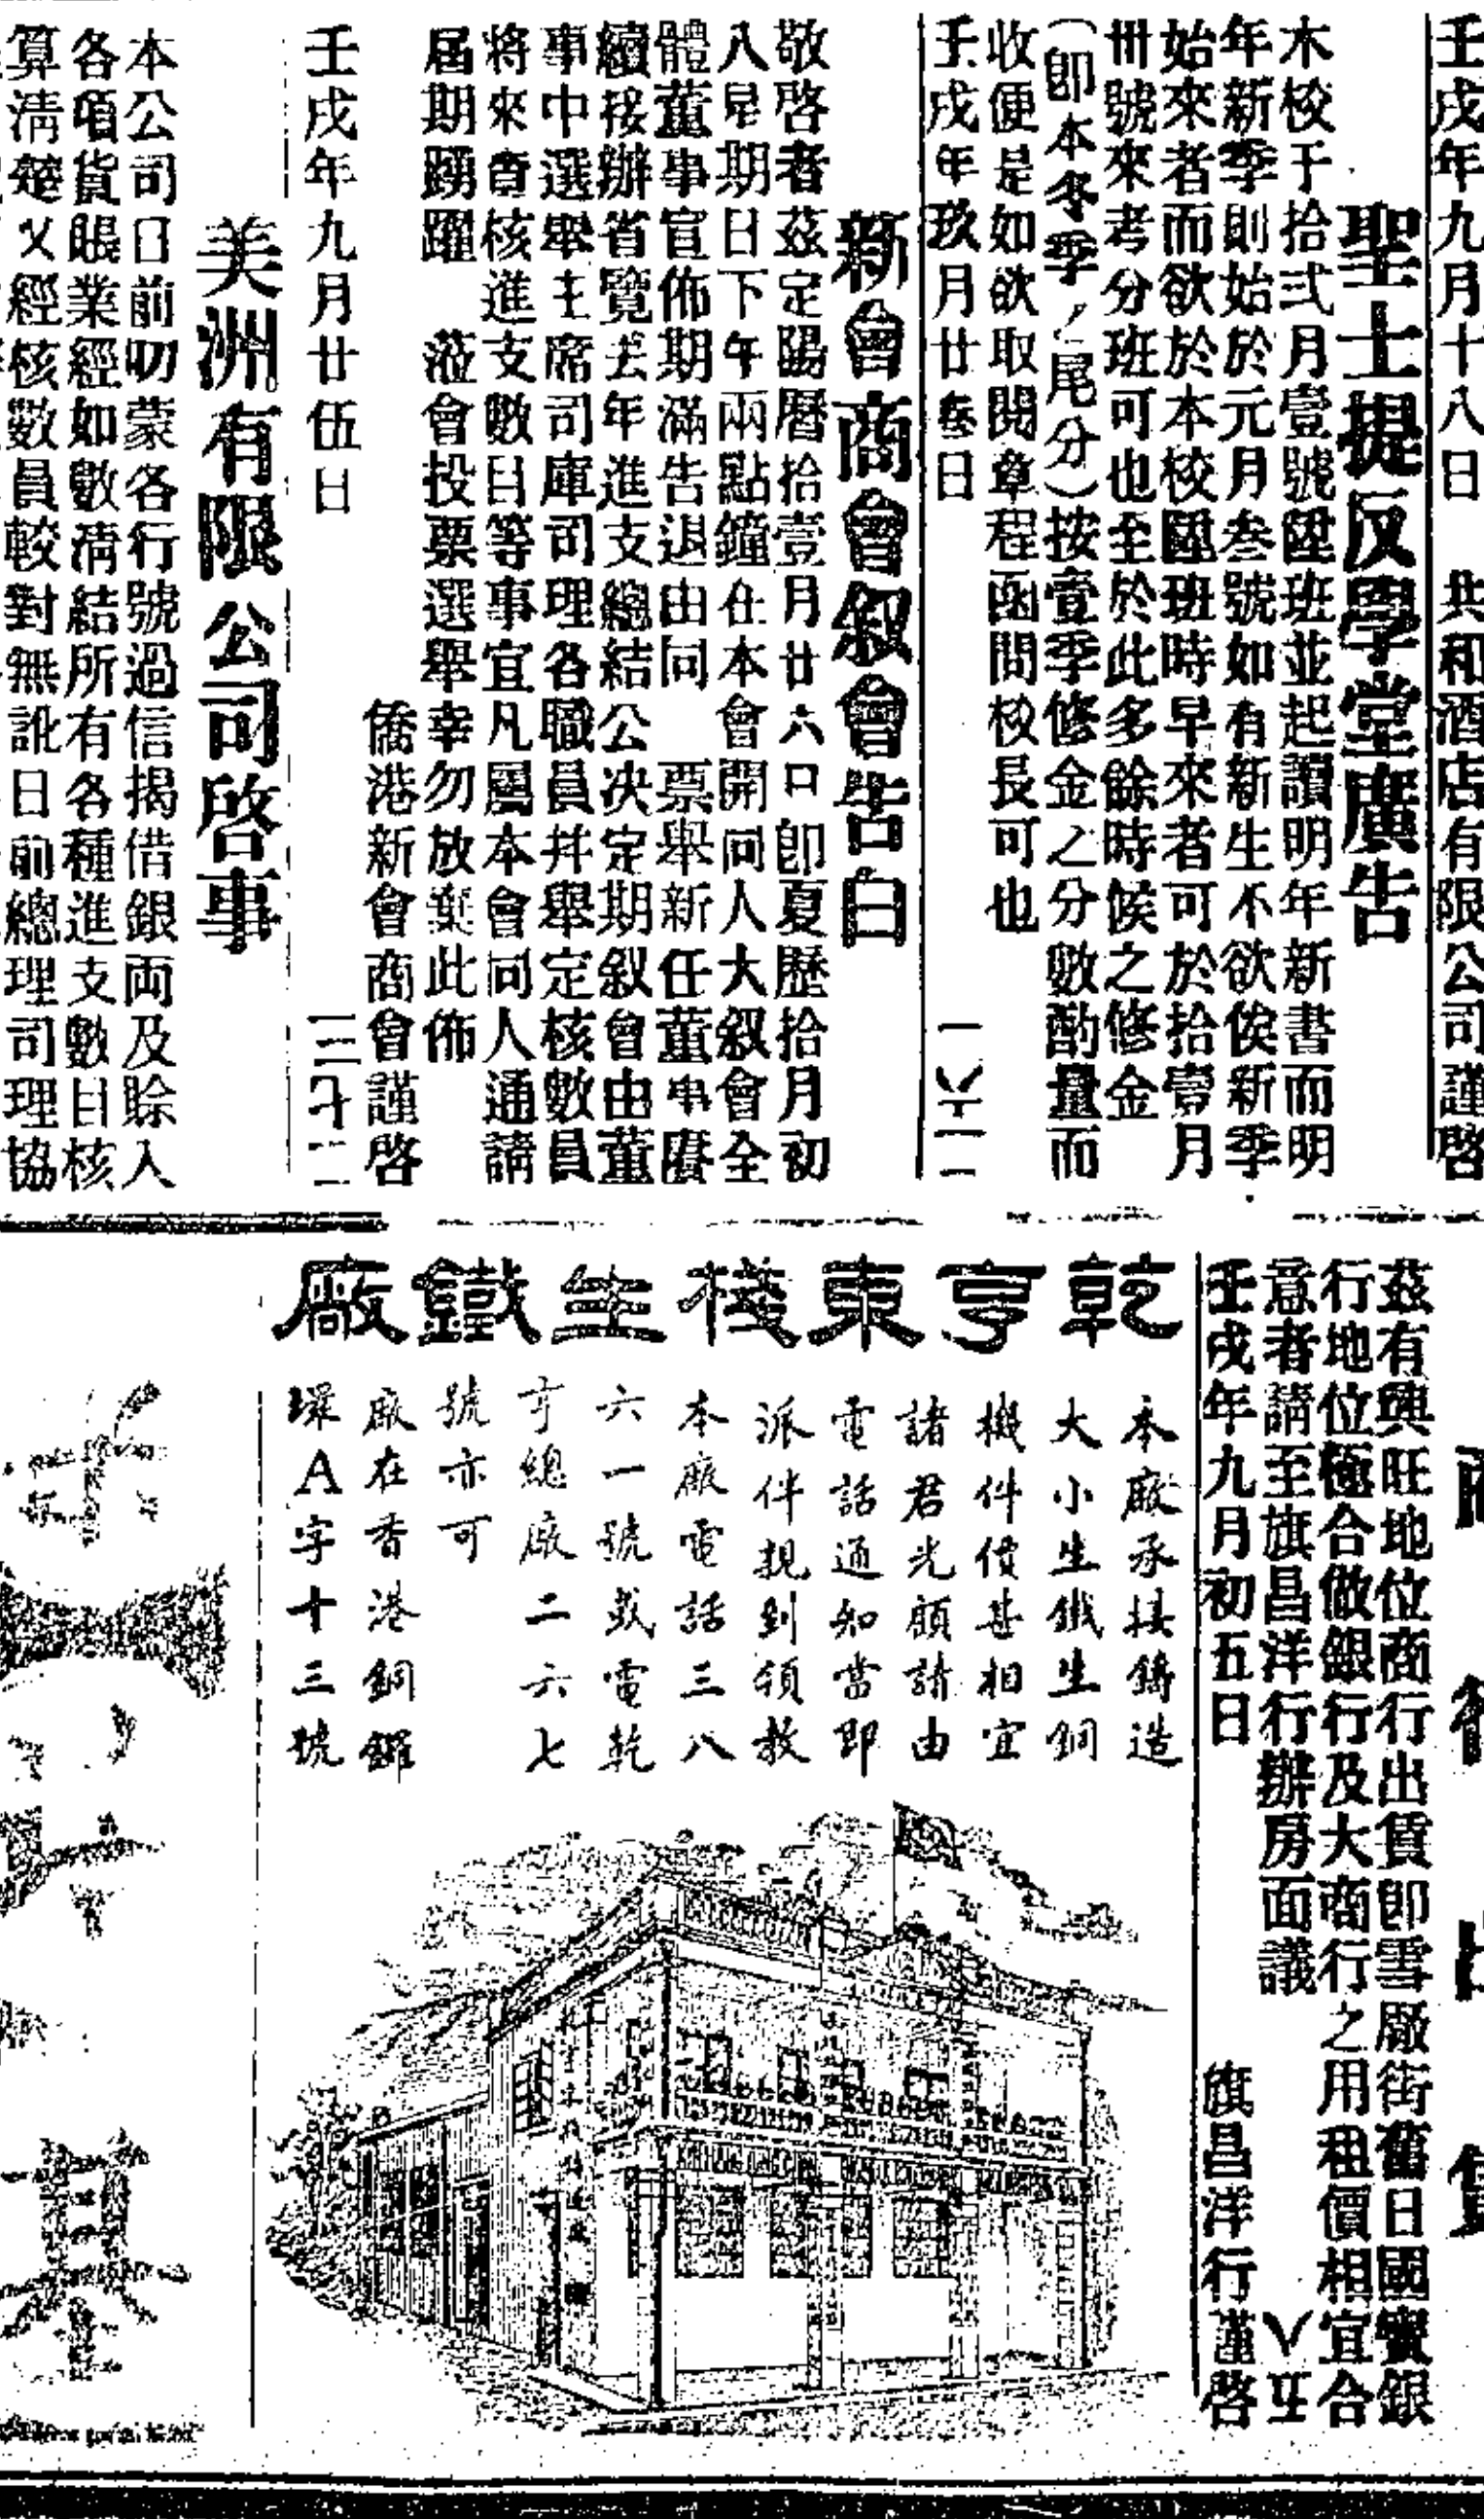 壬戌年九月十八日　共和酒店有限公司謹啓
聖士提反學堂廣告
木校于拾弍月壹號陞班並起讀明年新書而明
年新季則始於元月叁號如有新生不欲俟新季
始來者而欲於本校陞班時早來者可於拾壹月
卅號來考分班可也至於此多餘時候之修金
（卽本冬季ノ尾分）按壹季修金之分數酌量而
收便是如欲取閱章程函問校長可也
壬戌年玖月廿叁日
新會商會叙會告白
敬啓者茲定陽曆拾壹月廿六日卽夏歷拾月初
八星期日下午兩點鐘在本會開同人大叙會全
體董事宣佈期滿告退由同　票舉新任董事賡
續接辦省覽去年進支總結公决定期叙會由董
事中選舉主席司庫司理各職員幷舉定核數員
將來查核進支數目等事宜凡屬本會同人通請
屆期踴躍　蒞會投票選舉幸勿放棄此佈
僑港新會商會謹啓
壬戌年九月廿伍日
美洲有限公司啓事
本公司日前叨蒙各行號過信揭借銀両及賒入
各項貨賬業經如數清結所有各種進支數目核
算清楚乂經核數員較對無訛日前總理司理協
茲有興旺地位商行出賃卽雪厰街舊日國寳銀
行地位極合做銀行及大商行之用租價相宜合
意者請至旗昌洋行辦房面議
壬戌年九月初五日　旗昌洋行謹啓
乾亨東棧生鐵廠
本廠承接鑄造
大小生鐵生銅
機件價甚相宜
諸君光顧請由
電話通知當即
派伴親到領教
本廠電話三八
六一號或電乾
亨總廠二六七
號亦可
廠在香港銅鑼
環A字十三號